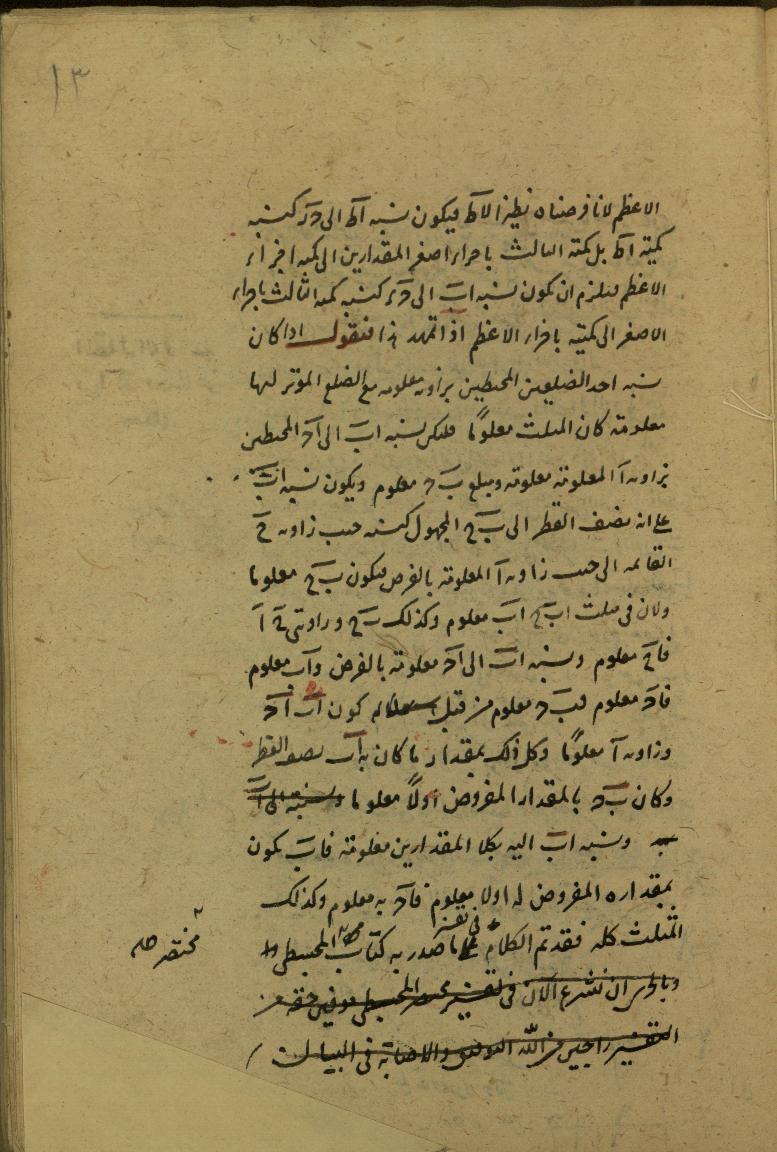 ١٣
الاعظم لانا فرضناه نظيرا لاط فيكون نسبه اط الى در كنسبه
كميته اط بل كميته الثالث باجزاء اصغر المقدارين الى كميه اجزاء
الاعظم فيلزم ان يكون نسبه اب الى در كنسبه كميه الثالث باجزاء
الاصغر الى كميته باجزاء الاعظم اذا تمهد هذا فنقول اذا كان
نسبه احد الضلعين المحيطين بزاويه معلومه مع الضلع الموتر لها
معلومة كان المثلث معلومًا فليكن نسبه اب الى اد المحيطين
بزاويه ا المعلومة معلومة وضلع ب د معلوم ويكون نسبه اب
على انه نصف القطر الى ب ح المجهول كنسبه جيب زاويه ح
القائمه الى جيب زاويه ا المعلومة بالفرض فيكون ب ح معلوما
ولان في مثلث اب ح اب معلوم وكذلك ب ح وزاويتي ح ا
فاح معلوم ونسبه اب الى اد معلومة بالفرض واب معلوم
فاد معلوم فب د معلوم من قبل كون اب اد
وزاويه ا معلومًا وكل ذلك بمقدار ما كان به اب نصف القطر
وكان ب د بالمقدار المفروض اولًا معلوما ونسبه الى اب
ونسبه اب اليه بكلا المقدارين معلومة فاب يكون
بمقداره المفروض له اولا معلوم فاد به معلوم وكذلك
المثلث كله فقد تم الكلام في تفسير ما صدر به كتاب المجسطي
مختصر صح
وبالحرى ان نشرع الان في تفسير مختصر المجسطي موفين حقه من
التفسير راجين من الله التوفيق والاصابة في البيان